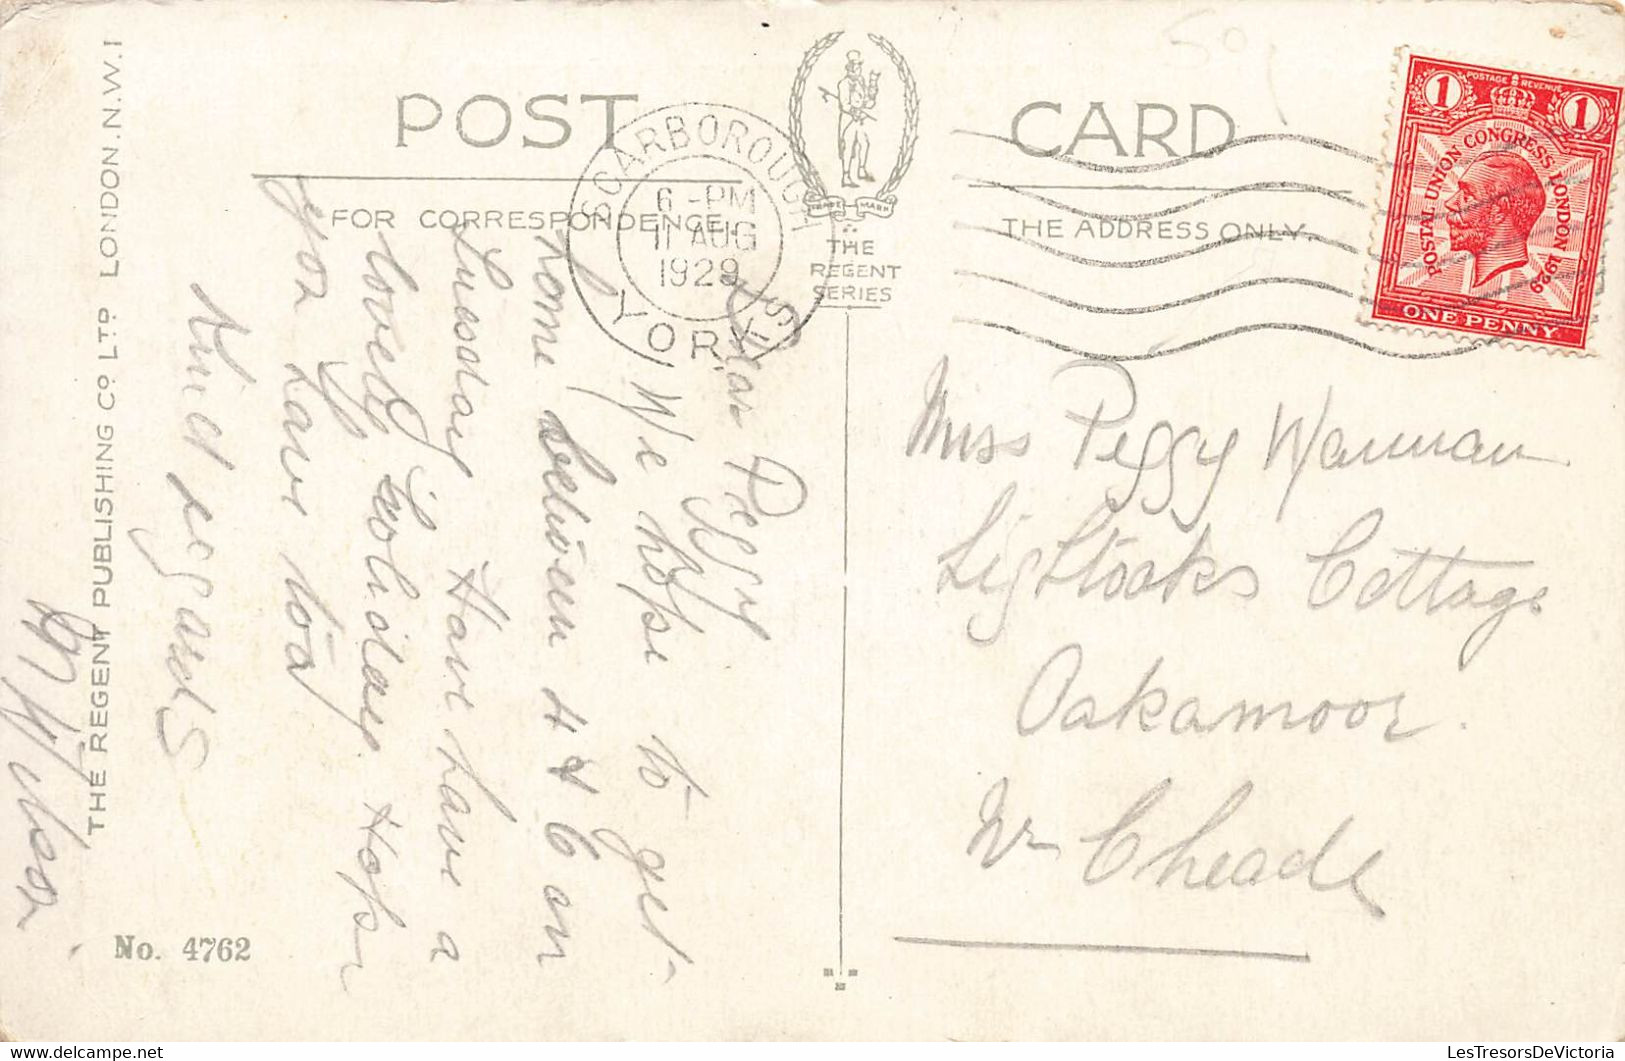 POST CARD
FOR CORRESPONDENCE.
THE ADDRESS ONLY.
TRADE MARK
THE
REGENT
SERIES
SCARBOROUGH
6 - PM
11 AUG
1929
YORKS
POSTAGE REVENUE
1 1
POSTAL UNION CONGRESS LONDON 1929
ONE PENNY
Dear Peggy
We hope to get
home between 4 & 6 on
Tuesday Have have a
lovely holiday Hope
you have too
Kind regards
Miss Peggy
Lightoaks Cottage
Oakamoor.
Nr Cheadle
THE REGENT PUBLISHING CO LTD LONDON.N.W.1
No. 4762
LesTresorsDeVictoria